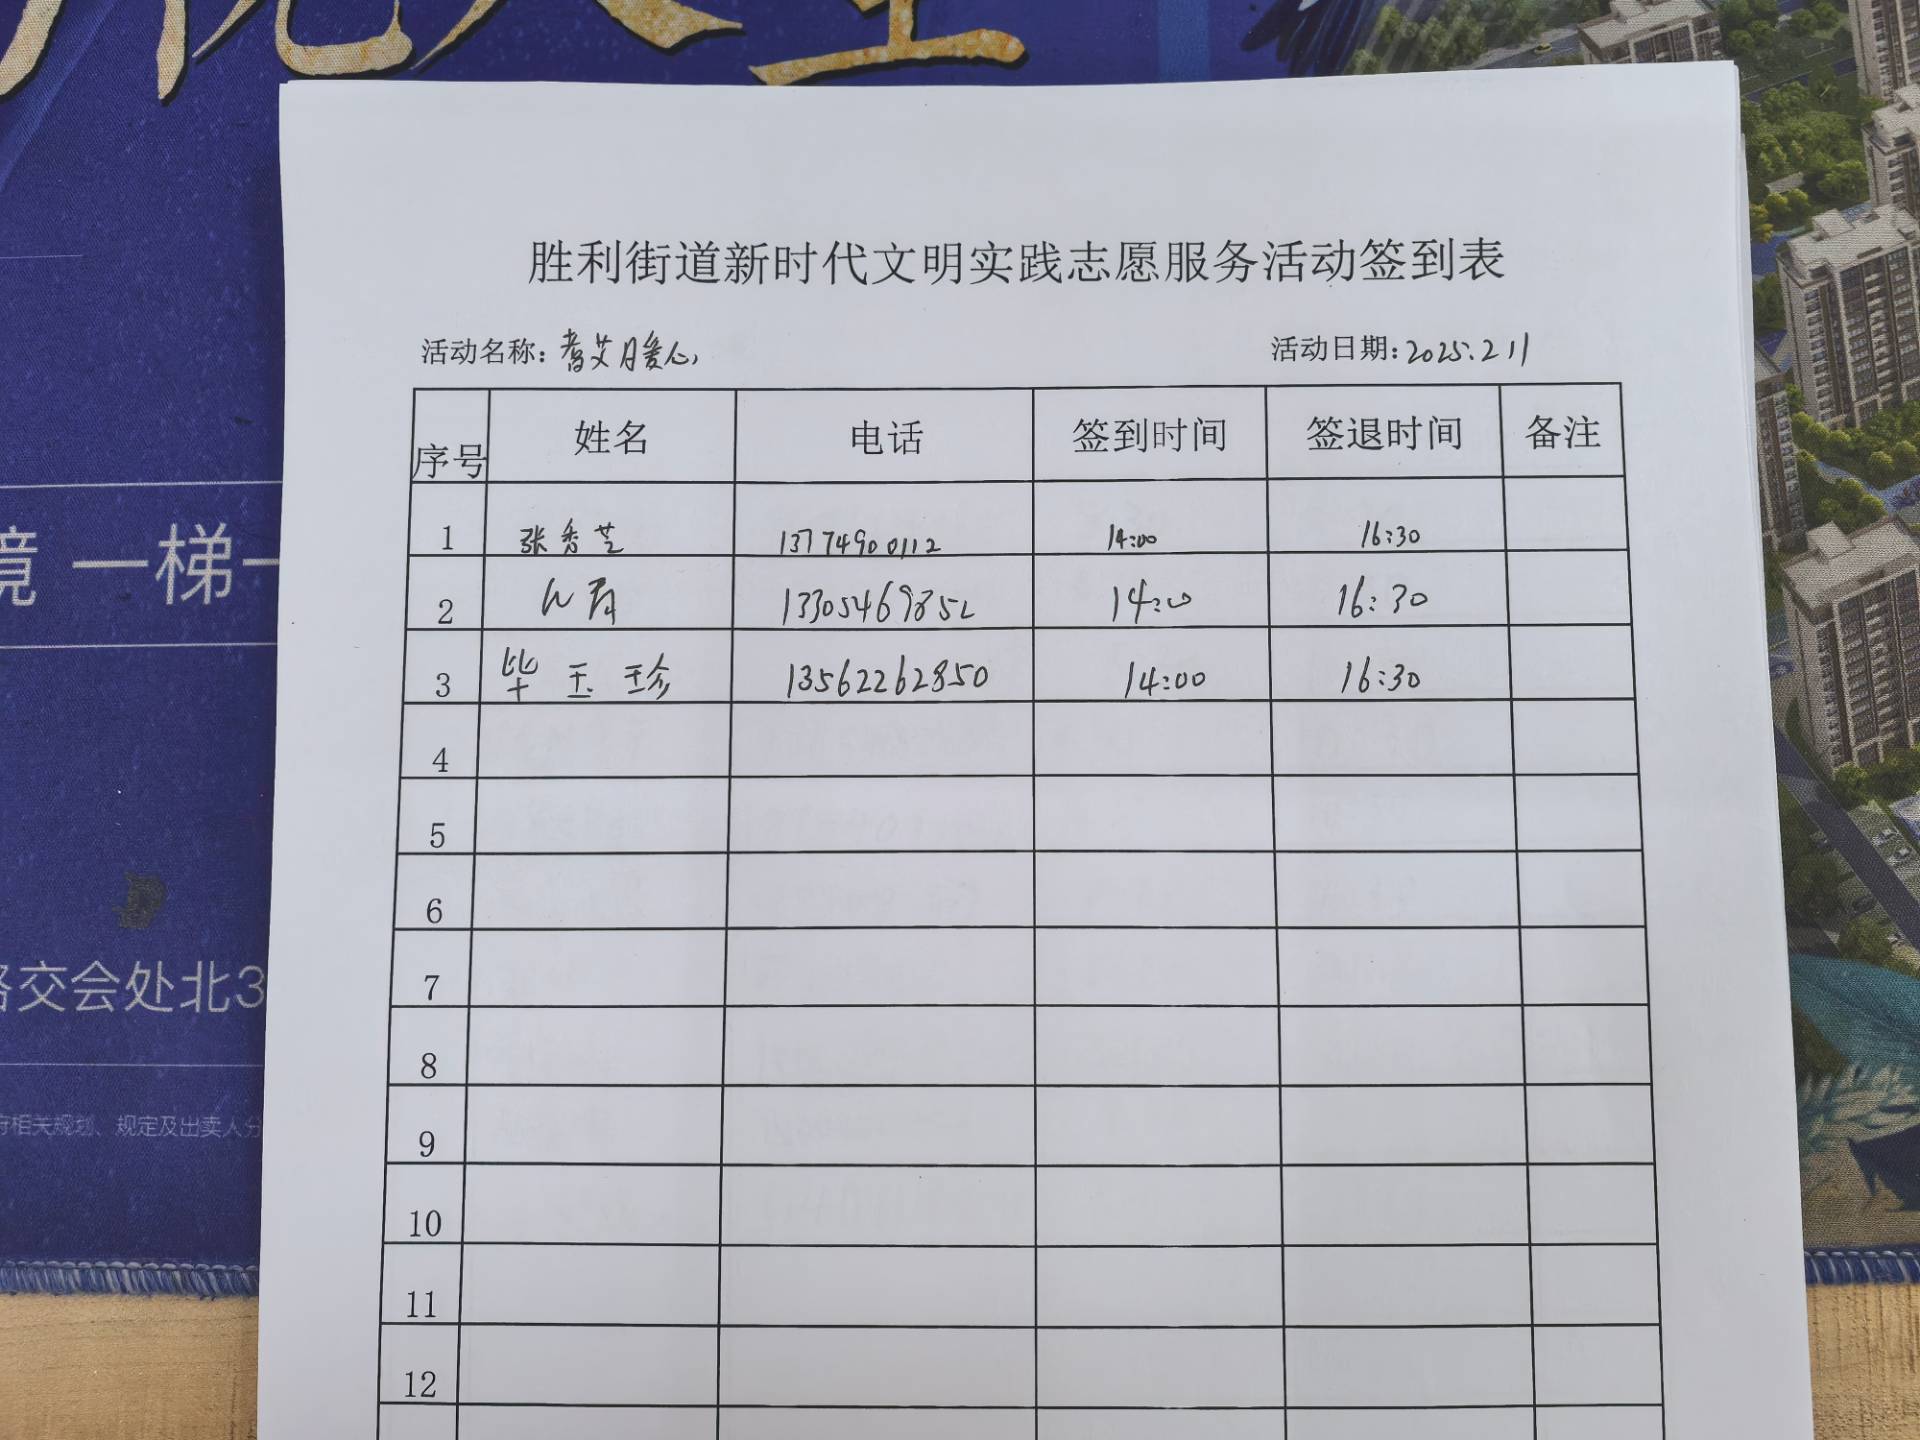 境 一梯一
路交会处北3
府相关规划、规定及出卖人分
胜利街道新时代文明实践志愿服务活动签到表
活动名称: 耆艾月爱心 活动日期: 2025.2.11
序号 姓名 电话 签到时间 签退时间 备注
1 张秀芝 13774900112 14:00 16:30
2 13305469852 14:00 16:30
3 毕玉珍 13562262850 14:00 16:30
4
5
6
7
8
9
10
11
12